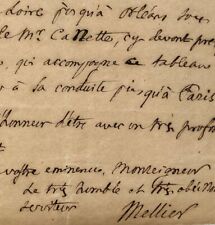 Loire jusqu'à Orléans sur
le Mr. Canette, cy devont pre
, qui accompagne ce tableau
à sa conduite jusqu'à Paris
l'honneur d'être avec un très profon
votre eminence, Monseigneur
Le très humble et très obeis
serviteur
Mellier